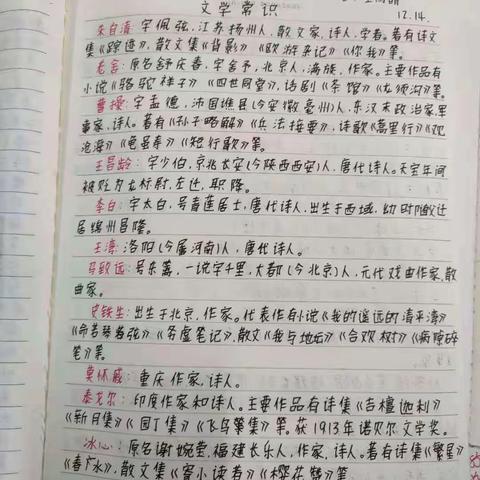 文学常识
12.14.
朱自清:字佩弦,江苏扬州人,散文家,诗人,学者。著有诗文
集《踪迹》,散文集《背影》《欧游杂记》《你我》等。
老舍:原名舒庆春,字舍予,北京人,满族,作家。主要作品有
小说《骆驼祥子》《四世同堂》,话剧《茶馆》《龙须沟》等。
曹操:字孟德,沛国谯县(今安徽亳州)人,东汉末政治家,军
事家,诗人。著有《孙子略解》《兵法接要》,诗歌《蒿里行》《观
沧海》《龟虽寿》《短行歌》等。
王昌龄:字少伯,京兆长安(今陕西西安)人,唐代诗人。天宝年间
被贬为龙标尉,左迁,职降。
李白:字太白,号青莲居士,唐代诗人,出生于西域,幼时随迁
居绵州昌隆。
王湾:洛阳(今属河南)人,唐代诗人。
马致远:号东篱,一说字千里,大都(今北京)人,元代戏曲作家,散
曲家。
史铁生:出生于北京,作家。代表作有小说《我的遥远的清平湾》
《命若琴弦》《务虚笔记》,散文《我与地坛》《合欢树》《病隙碎
笔》等。
莫怀戚:重庆作家,诗人。
泰戈尔:印度作家和诗人。主要作品有诗集《吉檀迦利》
《新月集》《园丁集》《飞鸟集》等。获1913年诺贝尔文学奖。
冰心:原名谢婉莹,福建长乐人,作家,诗人。著有诗集《繁星》
《春水》,散文集《寄小读者》《樱花赞》等